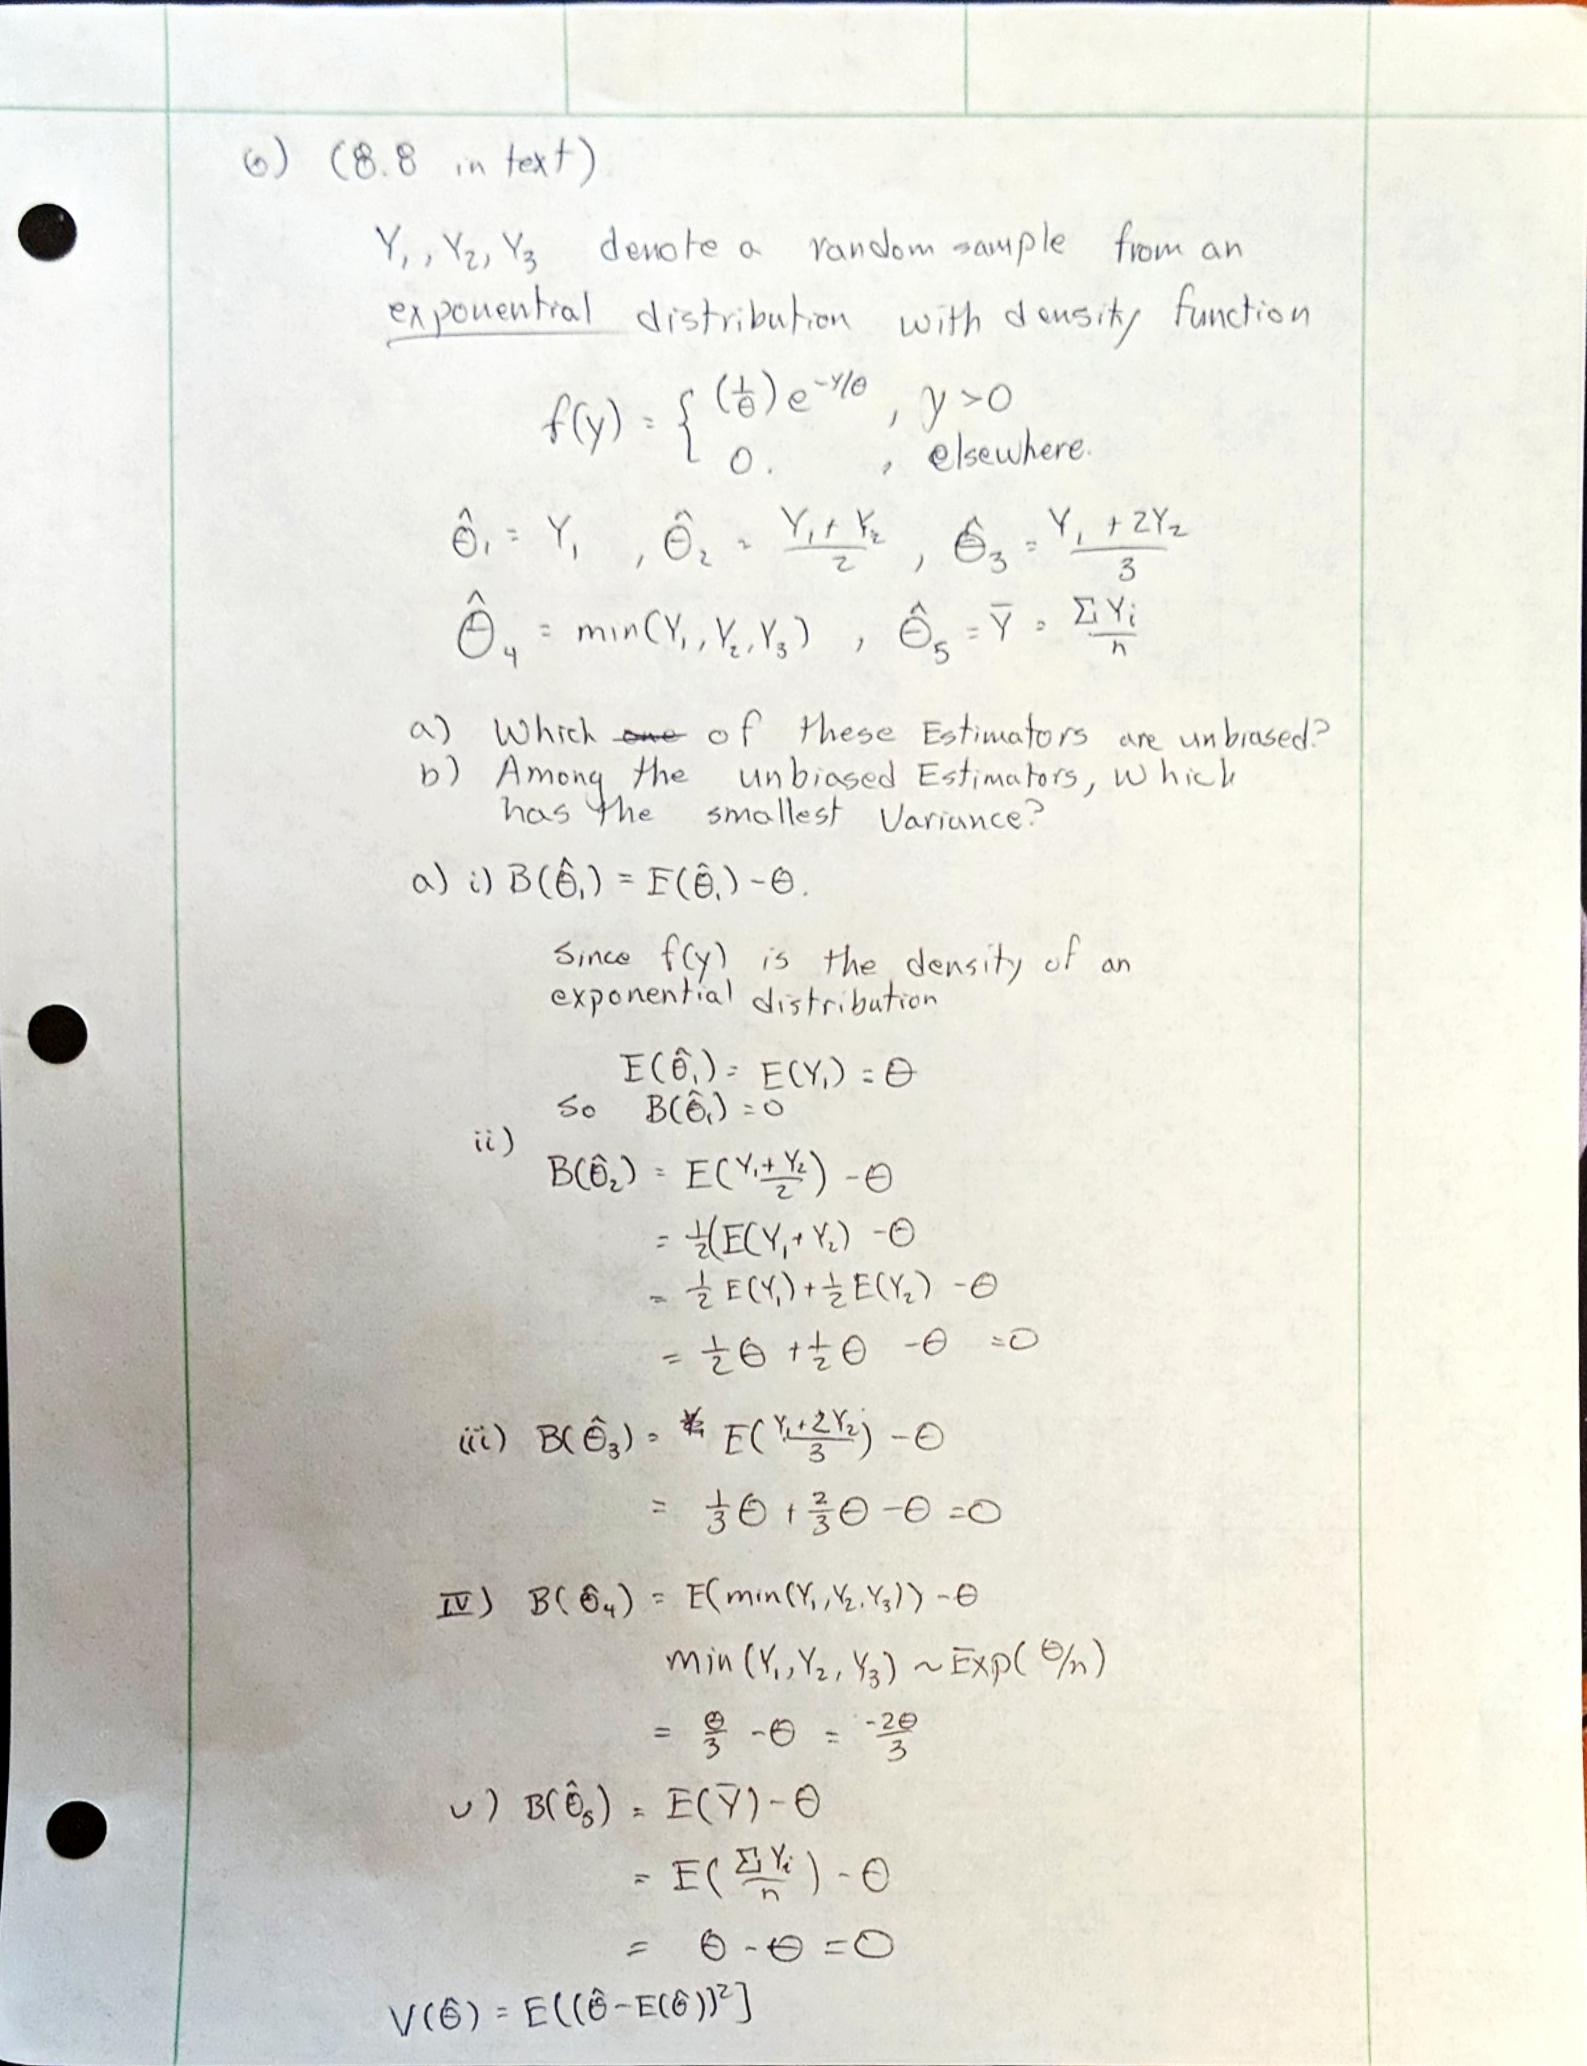 6) (8.8 in text)
Y₁, Y₂, Y₃ denote a random sample from an
exponential distribution with density function
f(y) = { (1/θ) e^(-y/θ) , y > 0
0. , elsewhere.
θ̂₁ = Y₁ , θ̂₂ = (Y₁ + Y₂)/2 , θ̂₃ = (Y₁ + 2Y₂)/3
θ̂₄ = min(Y₁, Y₂, Y₃) , θ̂₅ = Ȳ = ΣYi/n
a) Which one of these Estimators are unbiased?
b) Among the unbiased Estimators, which
has the smallest Variance?
a) i) B(θ̂₁) = E(θ̂₁) - θ.
Since f(y) is the density of an
exponential distribution
E(θ̂₁) = E(Y₁) = θ
So B(θ̂₁) = 0
ii)
B(θ̂₂) = E((Y₁ + Y₂)/2) - θ
= ½(E(Y₁ + Y₂) - θ
= ½ E(Y₁) + ½ E(Y₂) - θ
= ½ θ + ½ θ - θ = 0
iii) B(θ̂₃) = E((Y₁ + 2Y₂)/3) - θ
= ⅓ θ + ⅔ θ - θ = 0
IV) B(θ̂₄) = E(min(Y₁, Y₂, Y₃)) - θ
min(Y₁, Y₂, Y₃) ~ Exp(θ/n)
= θ/3 - θ = -2θ/3
v) B(θ̂₅) = E(Ȳ) - θ
= E(ΣYi/n) - θ
= θ - θ = 0
V(θ̂) = E((θ̂ - E(θ̂))²]